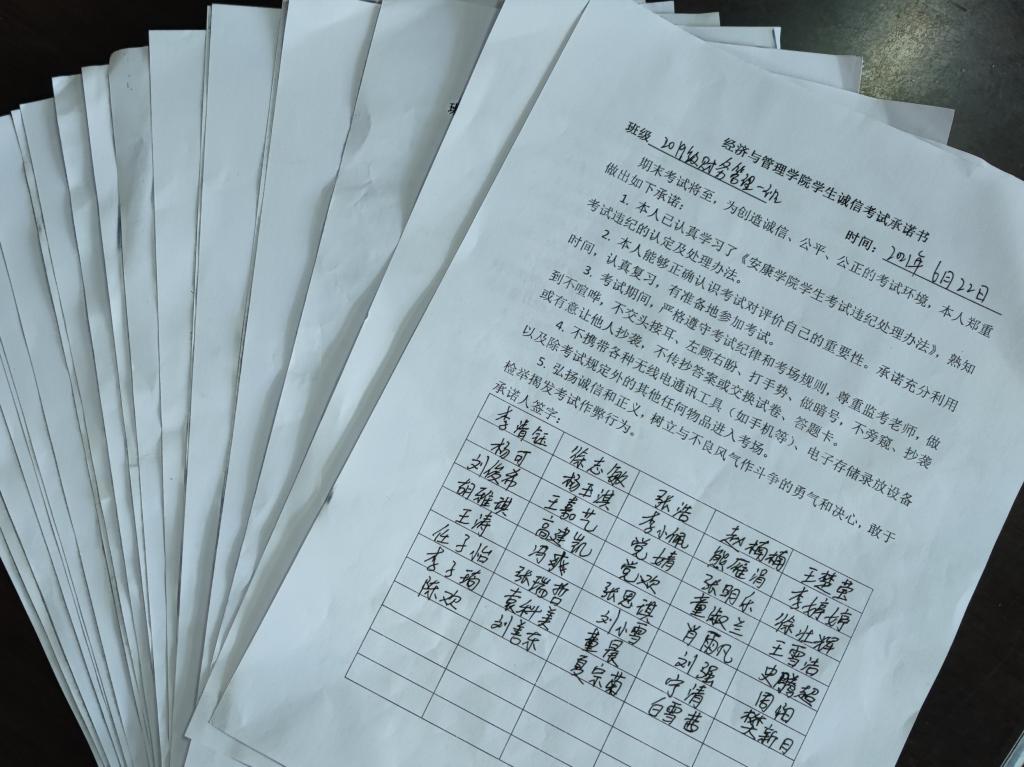 经济与管理学院学生诚信考试承诺书
班级 2019级财务管理一班 时间：2021年6月22日
期末考试将至，为创造诚信、公平、公正的考试环境，本人郑重
做出如下承诺：
1. 本人已认真学习了《安康学院学生考试违纪处理办法》，熟知
考试违纪的认定及处理办法。
2. 本人能够正确认识考试对评价自己的重要性。承诺充分利用
时间，认真复习，有准备地参加考试。
3. 考试期间，严格遵守考试纪律和考场规则，尊重监考老师，做
到不喧哗，不交头接耳、左顾右盼、打手势、做暗号，不旁窥、抄袭
或有意让他人抄袭，不传抄答案或交换试卷、答题卡。
4. 不携带各种无线电通讯工具（如手机等）、电子存储录放设备
以及除考试规定外的其他任何物品进入考场。
5. 弘扬诚信和正义，树立与不良风气作斗争的勇气和决心，敢于
检举揭发考试作弊行为。
承诺人签字：
徐志敏 张浩 赵楠楠 王楚莹
杨可 杨玉淇 李小佩 殷雁涓
王嘉艺 党婧 张明乐 徐世辉
胡雅琪 高建凯 党欢 董淑兰 王雪浩
王涛 张思祺 肖雨风 史腾超
任子怡 张瑞哲 刘小雪 刘强 周阳
董晨 宁清 樊新月
陈欢 刘善东 夏宗菊 白雪茜
班